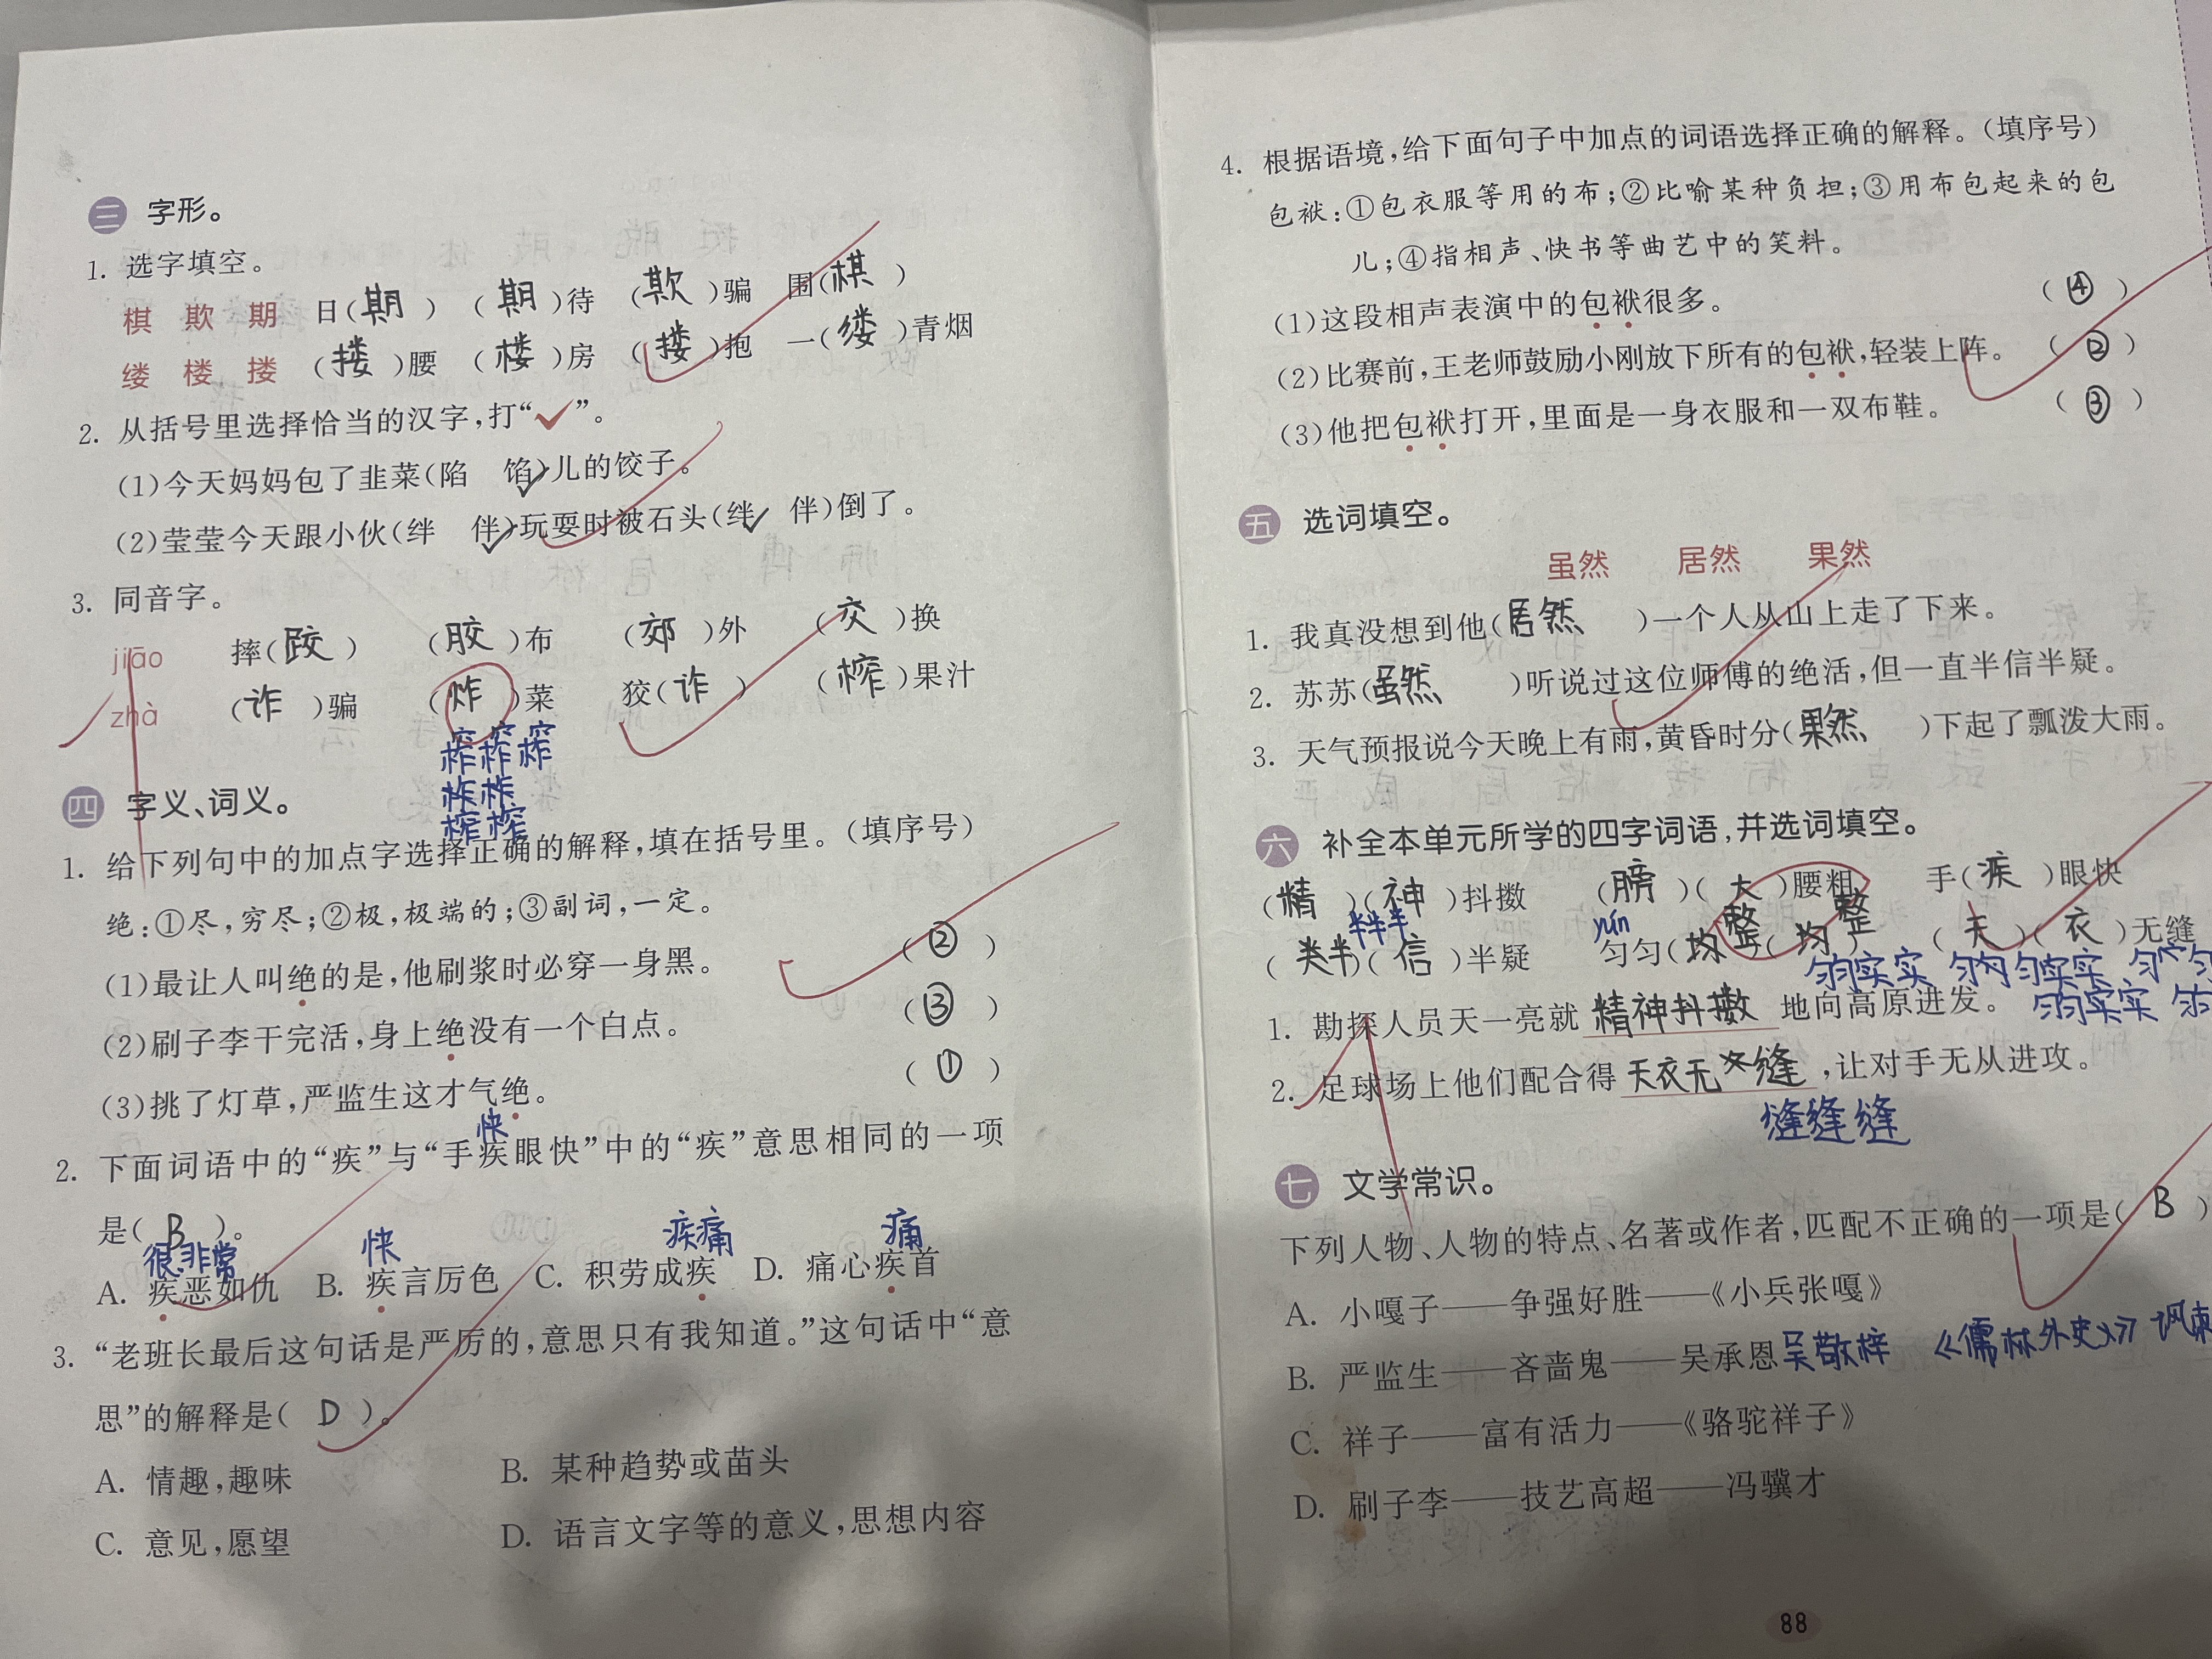 三 字形。
1. 选字填空。
棋 欺 期 日(期) (期)待 (欺)骗 围(棋)
缕 楼 搂 (搂)腰 (楼)房 (搂)抱 一(缕)青烟
2. 从括号里选择恰当的汉字,打“✓”。
(1)今天妈妈包了韭菜(陷 馅✓)儿的饺子。
(2)莹莹今天跟小伙(绊 伴✓)玩耍时被石头(绊✓ 伴)倒了。
3. 同音字。
jiāo 摔(跤) (胶)布 (郊)外 (交)换
zhà (诈)骗 (炸)菜 狡(诈) (榨)果汁
榨榨榨
榨榨
榨榨
四 字义、词义。
1. 给下列句中的加点字选择正确的解释,填在括号里。(填序号)
绝:①尽,穷尽;②极,极端的;③副词,一定。
(1)最让人叫绝的是,他刷浆时必穿一身黑。 (②)
(2)刷子李干完活,身上绝没有一个白点。 (③)
(3)挑了灯草,严监生这才气绝。 (①)
快
2. 下面词语中的“疾”与“手疾眼快”中的“疾”意思相同的一项
是(B)。
很.非常 快 疾痛 痛
A. 疾恶如仇 B. 疾言厉色 C. 积劳成疾 D. 痛心疾首
3. “老班长最后这句话是严厉的,意思只有我知道。”这句话中“意
思”的解释是(D)。
A. 情趣,趣味 B. 某种趋势或苗头
C. 意见,愿望 D. 语言文字等的意义,思想内容
4. 根据语境,给下面句子中加点的词语选择正确的解释。(填序号)
包袱:①包衣服等用的布;②比喻某种负担;③用布包起来的包
儿;④指相声、快书等曲艺中的笑料。
(1)这段相声表演中的包袱很多。 (④)
(2)比赛前,王老师鼓励小刚放下所有的包袱,轻装上阵。 (②)
(3)他把包袱打开,里面是一身衣服和一双布鞋。 (③)
五 选词填空。
虽然 居然 果然
1. 我真没想到他(居然)一个人从山上走了下来。
2. 苏苏(虽然)听说过这位师傅的绝活,但一直半信半疑。
3. 天气预报说今天晚上有雨,黄昏时分(果然)下起了瓢泼大雨。
六 补全本单元所学的四字词语,并选词填空。
(精)(神)抖擞 (膀)(大)腰粗 手(疾)眼快
半半半 yún 整 整
(半)(信)半疑 匀匀(均)(均) (天)(衣)无缝
匀匀实实 匀匀匀实实 匀匀
匀匀实实
1. 勘探人员天一亮就 精神抖擞 地向高原进发。
2. 足球场上他们配合得 天衣无缝 ,让对手无从进攻。
缝缝缝
七 文学常识。
下列人物、人物的特点、名著或作者,匹配不正确的一项是(B)
A. 小嘎子——争强好胜——《小兵张嘎》
B. 严监生——吝啬鬼——吴承恩 吴敬梓 《儒林外史》 讽刺
C. 祥子——富有活力——《骆驼祥子》
D. 刷子李——技艺高超——冯骥才
88